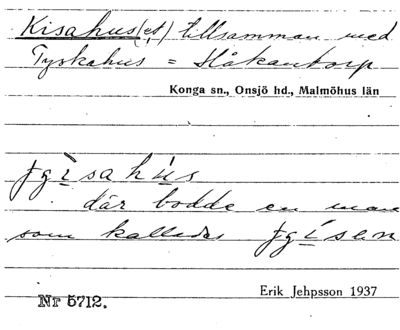 Kisahus(et) tillsamman med
Tyskahus = Håkantorp
Konga sn., Onsjö hd., Malmöhus län
fgisahús
där bodde en man
som kallades fgísen
Erik Jehpsson 1937
Nr 5712.